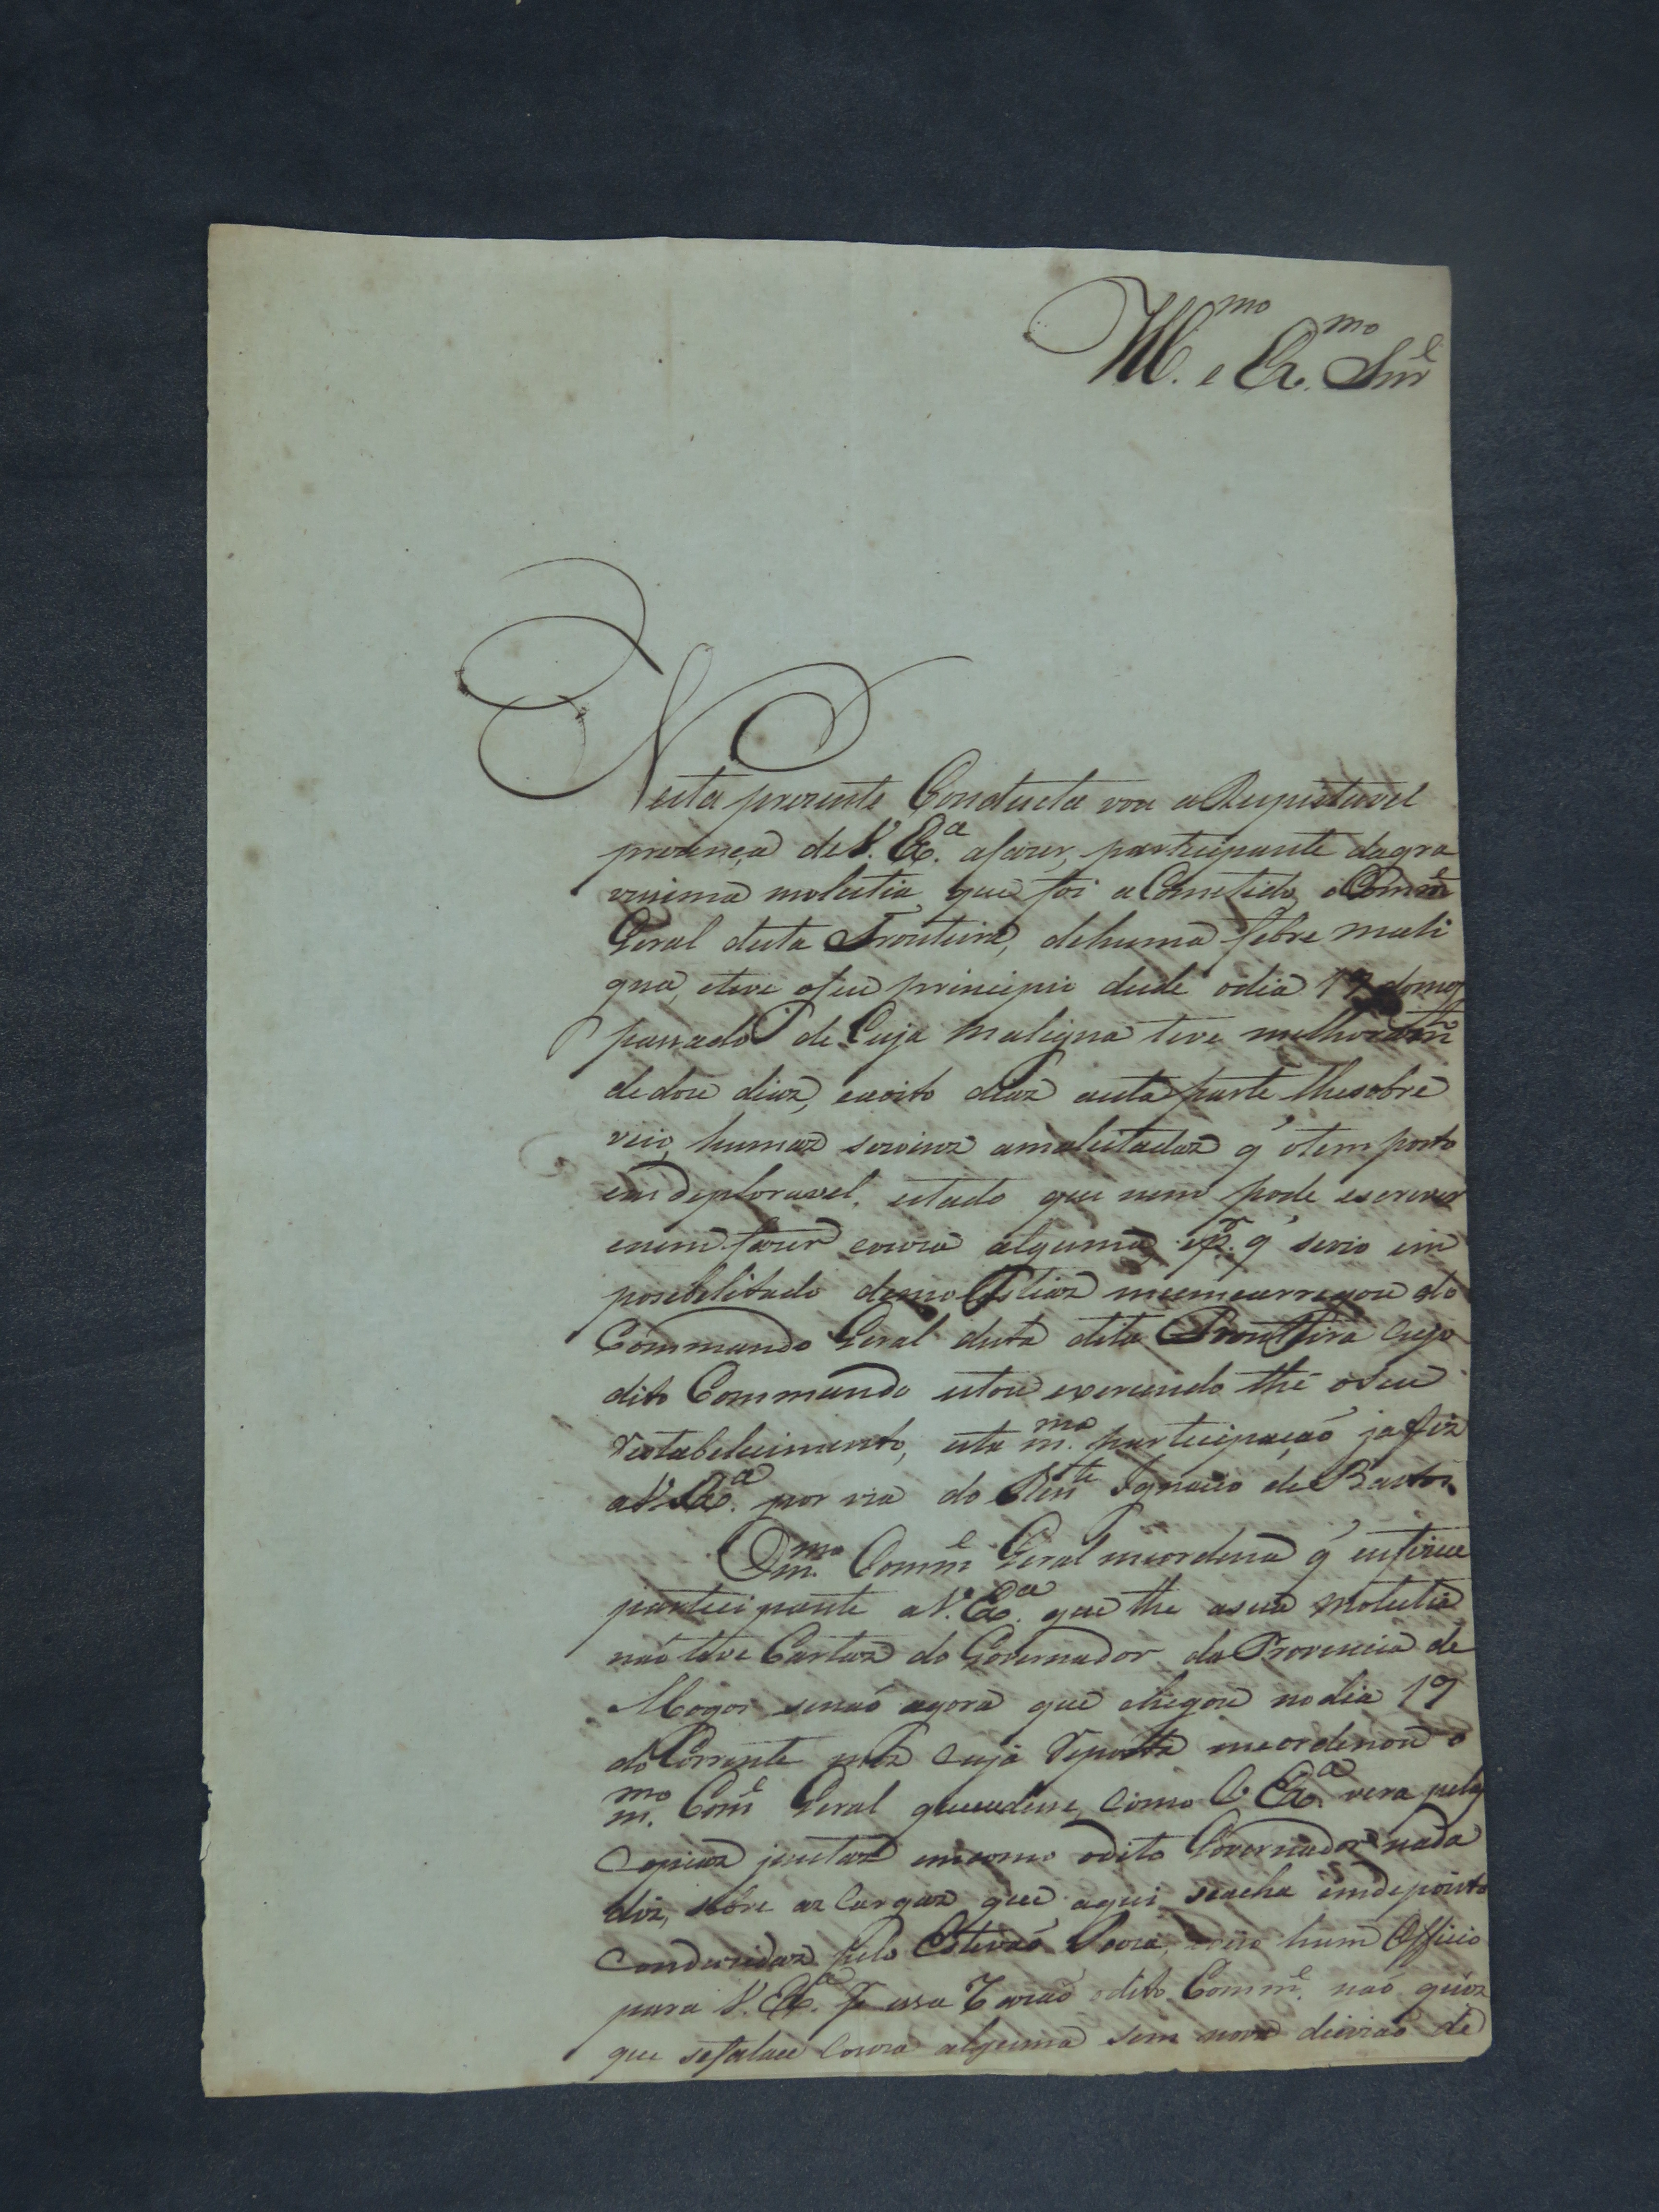 Ill.mo e Ex.mo Snr.e
Nesta prezente Conducta vou a Respeitavel
prezença de V. Ex.a afazer, participante dagra
vissima molestia que foi a Cometido, o Comm.e
Geral desta Fronteira, dehuma febre mali
gna, eteve oseu principio desde odia 17 do mez
passado de Cuja maligna teve melhora
dedoze diaz, eaoito diaz aesta parte lhesobre
veio, humaz sezoinz amaleitadaz q' otem posto
em deploravel, estado que nem pode escrever
enem fazer couza alguma, e p.r q' sevio im
posebilitado demolestiaz meemcarregou do
Commando Geral desta dita Fronteira Cujo
dito Commando estou exercendo thé oseu
restabelecimento, esta m.ma participação ja fiz
a V. Ex.a por via do Ten.te Ignacio de Bastos
O m.mo Comm.e Geral meordena q' eufizece
participante a V. Ex.a que the asua molestia
não teve Cartaz do Governador da Provencia de
Mogos senão agora que chegou no dia 17
do Corrente mez cuja reposta meordenou o
m.mo Com.e Geral queeudese, Como V. Ex.a vera pelaz
Copiaz juntaz emcomo odito Governador nada
diz, sobre az Cargaz que aqui seacha emdepozito
Conduzidaz pelo Estevão eveio hum Officio
para V. Ex.a p essa razão odito Comm.e não quiz
que sefalace Couza alguma sem nova de